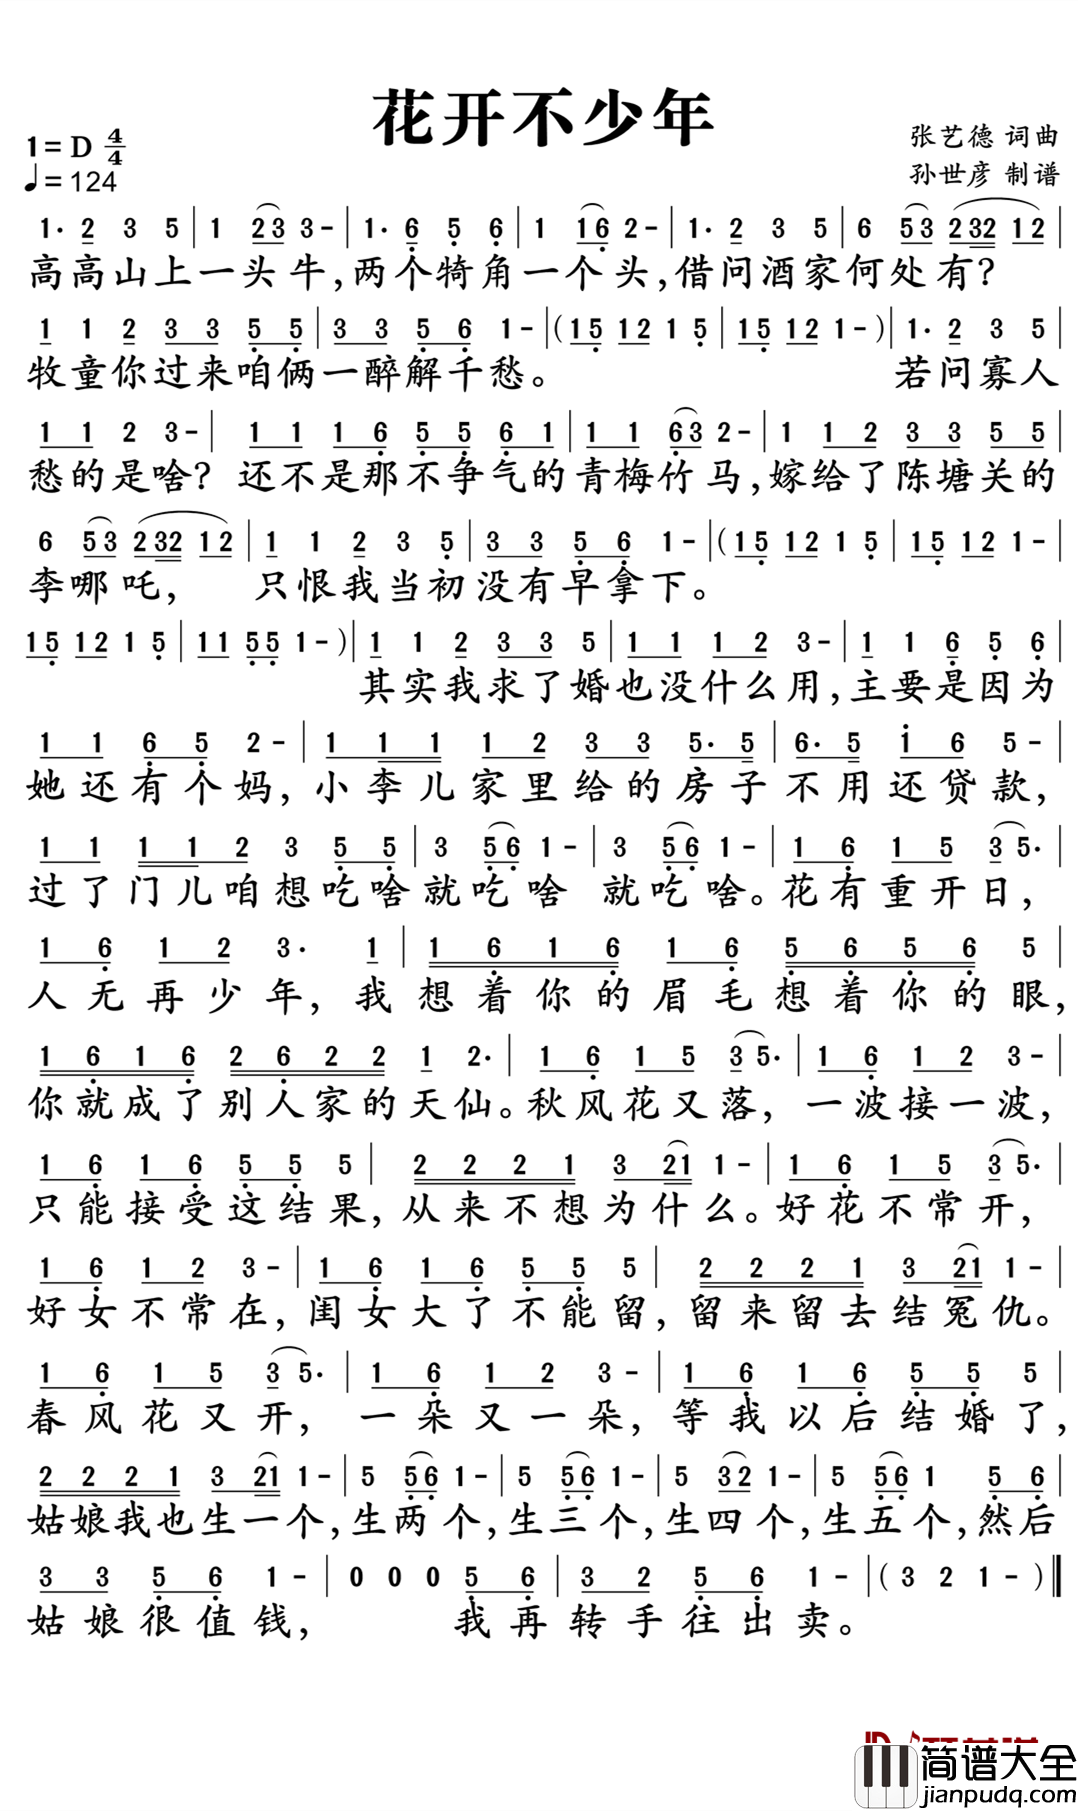 花开不少年
1=D 4/4
♩=124
张艺德 词曲
孙世彦 制谱
1· 2 3 5 | 1 2 3 3 - | 1· 6 5 6 | 1 1 6 2 - | 1· 2 3 5 | 6 5 3 2 3 2 1 2 |
高高山上一头牛,两个犄角一个头,借问酒家何处有?
1 1 2 3 3 5 5 | 3 3 5 6 1 - | (1 5 1 2 1 5 | 1 5 1 2 1 - ) | 1· 2 3 5
牧童你过来咱俩一醉解千愁。 若问寡人
1 1 2 3 - | 1 1 1 6 5 5 6 1 | 1 1 6 3 2 - | 1 1 2 3 3 5 5 |
愁的是啥? 还不是那不争气的青梅竹马,嫁给了陈塘关的
6 5 3 2 3 2 1 2 | 1 1 2 3 5 | 3 3 5 6 1 - | (1 5 1 2 1 5 | 1 5 1 2 1 - |
李哪吒, 只恨我当初没有早拿下。
1 5 1 2 1 5 | 1 1 5 5 1 - ) | 1 1 2 3 3 5 | 1 1 1 2 3 - | 1 1 6 5 6 |
其实我求了婚也没什么用,主要是因为
1 1 6 5 2 - | 1 1 1 1 2 3 3 5· 5 | 6· 5 1 6 5 - |
她还有个妈,小李儿家里给的房子不用还贷款,
1 1 1 1 2 3 5 5 | 3 5 6 1 - | 3 5 6 1 - | 1 6 1 5 3 5· |
过了门儿咱想吃啥就吃啥 就吃啥。花有重开日,
1 6 1 2 3· 1 | 1 6 1 6 1 6 5 6 5 6 5 |
人无再少年,我想着你的眉毛想着你的眼,
1 6 1 6 2 6 2 2 1 2· | 1 6 1 5 3 5· | 1 6 1 2 3 - |
你就成了别人家的天仙。秋风花又落,一波接一波,
1 6 1 6 5 5 5 | 2 2 2 1 3 2 1 1 - | 1 6 1 5 3 5· |
只能接受这结果,从来不想为什么。好花不常开,
1 6 1 2 3 - | 1 6 1 6 5 5 5 | 2 2 2 1 3 2 1 1 - |
好女不常在,闺女大了不能留,留来留去结冤仇。
1 6 1 5 3 5· | 1 6 1 2 3 - | 1 6 1 6 5 5 5 |
春风花又开,一朵又一朵,等我以后结婚了,
2 2 2 1 3 2 1 1 - | 5 5 6 1 - | 5 5 6 1 - | 5 3 2 1 - | 5 5 6 1 5 6 |
姑娘我也生一个,生两个,生三个,生四个,生五个,然后
3 3 5 6 1 - | 0 0 0 5 6 | 3 2 5 6 1 - | ( 3 2 1 - ) ‖
姑娘很值钱, 我再转手往出卖。
简谱大全
jianpudq.com